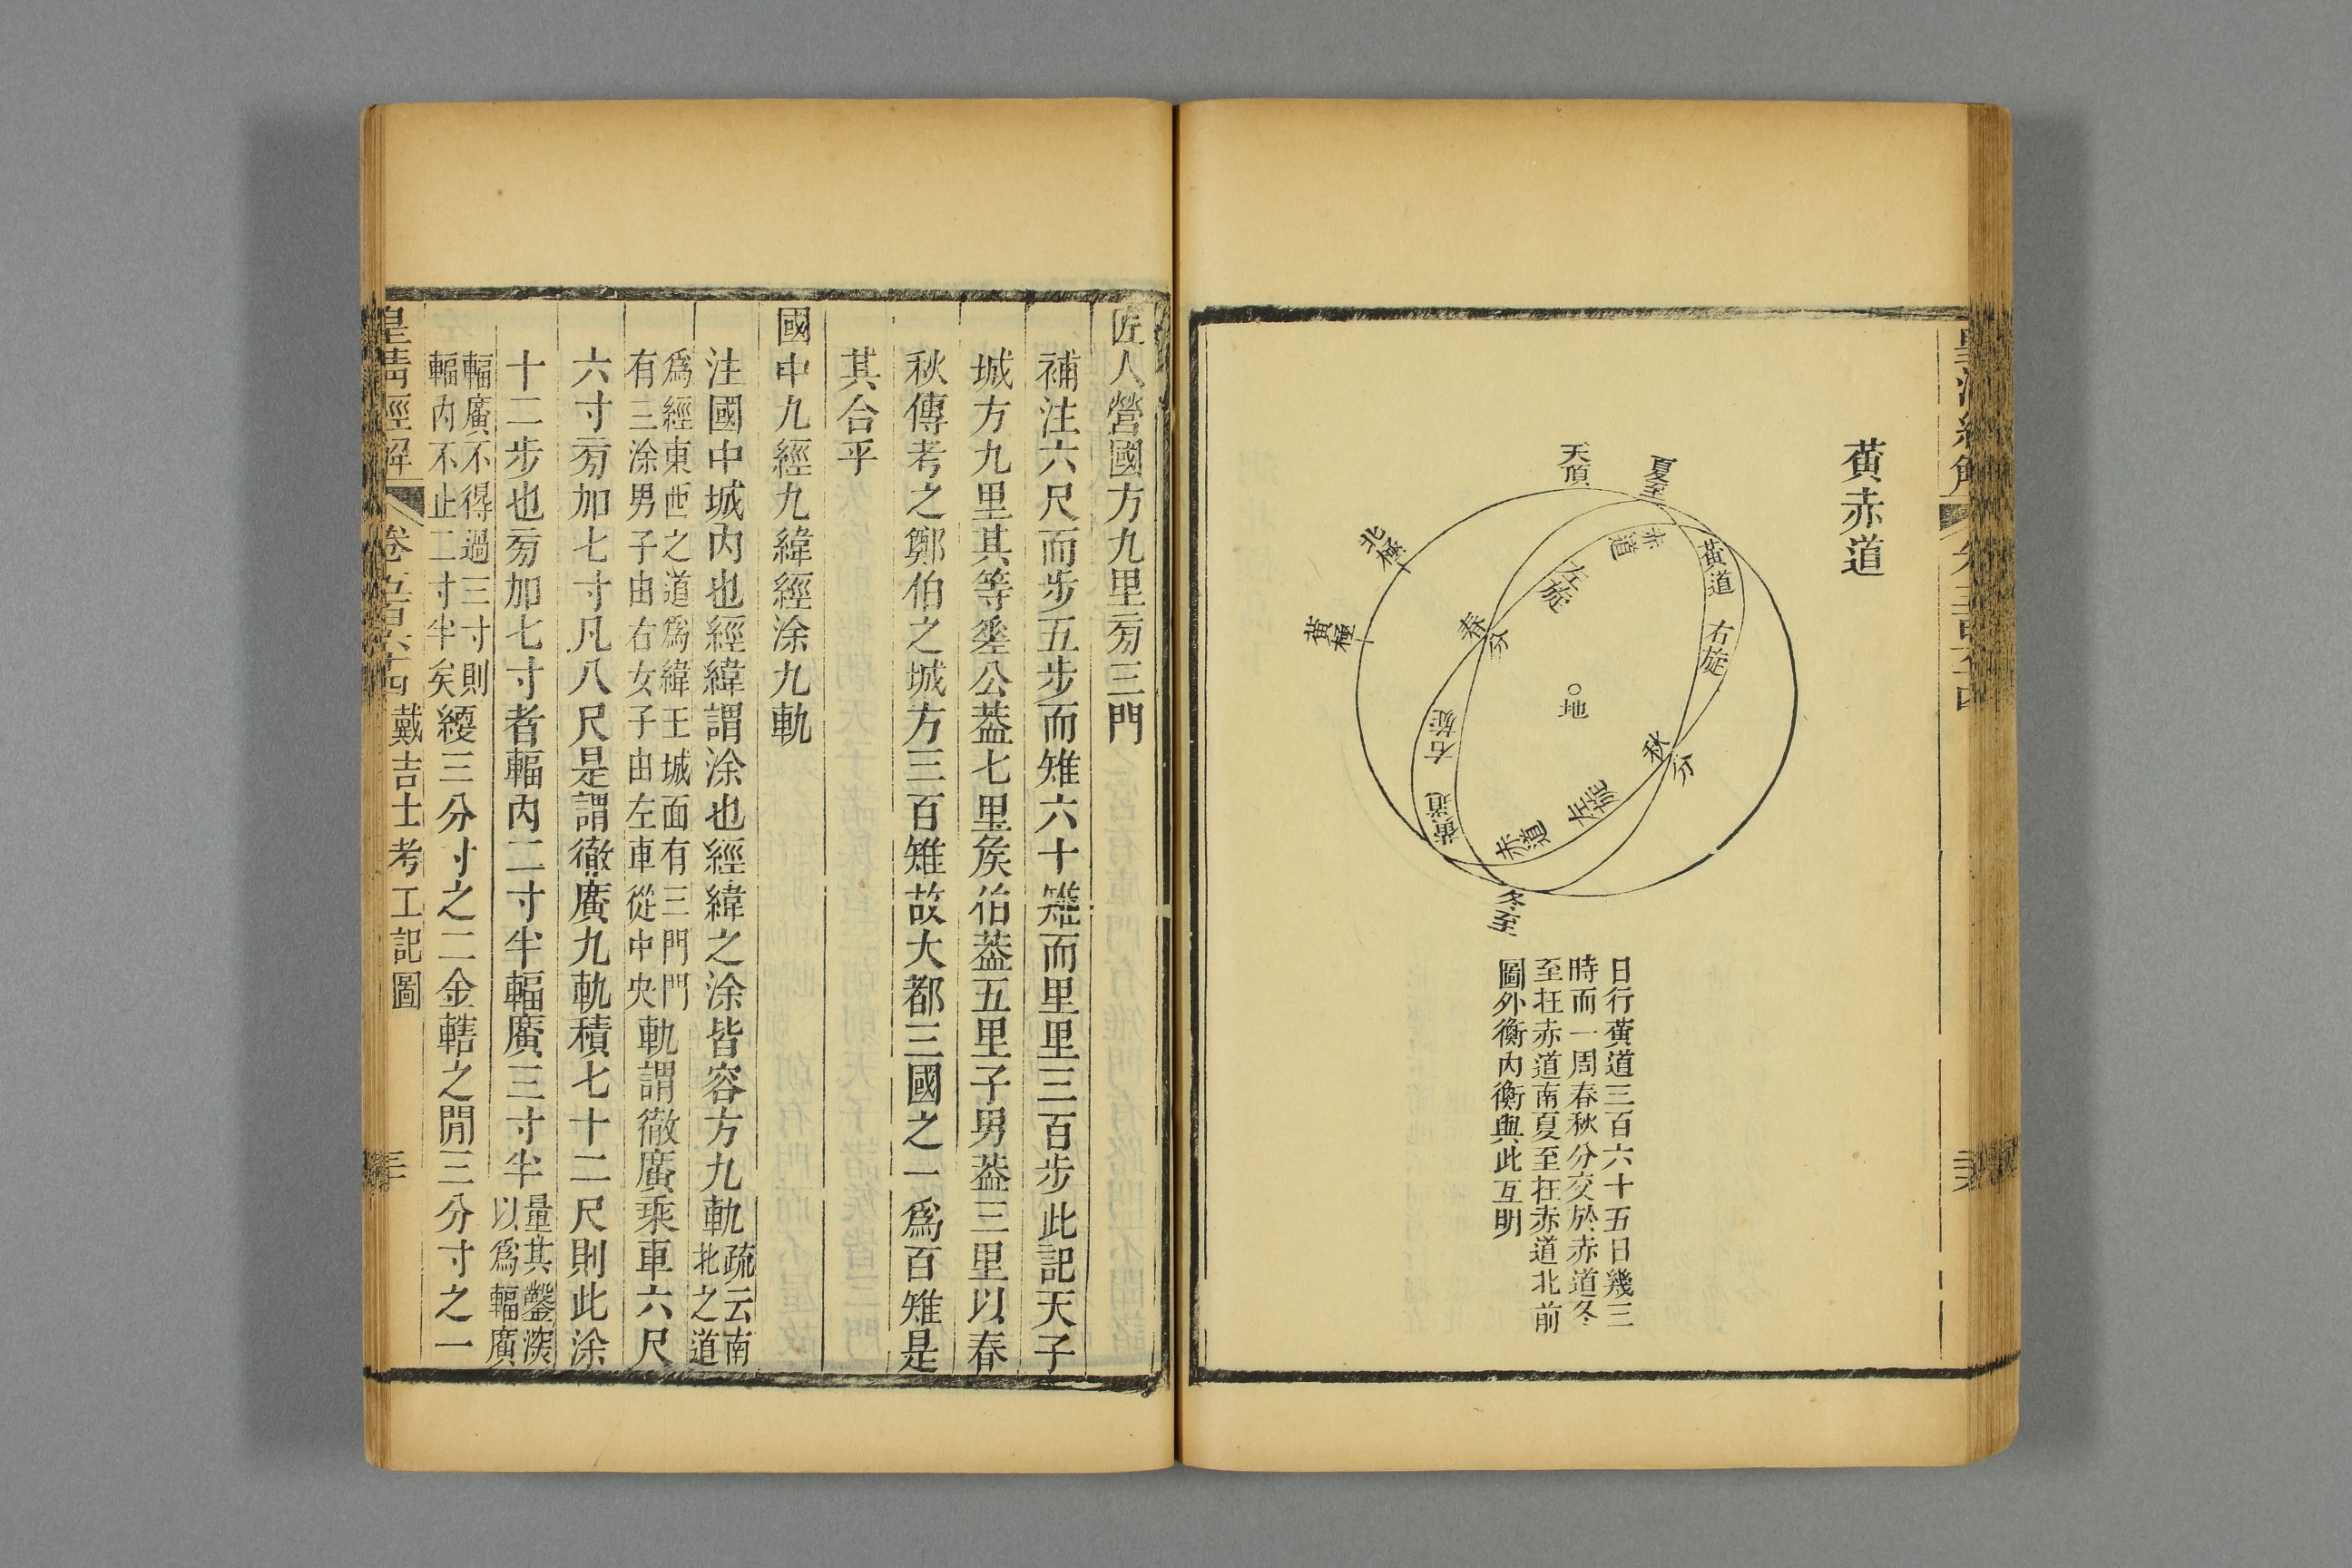 黃赤道
天頂
夏至
北極
黃極
赤道
左旋
黃道
右旋
春分
地
秋分
右旋
黃道
左旋
赤道
冬至
日行黃道三百六十五日幾三
時而一周春秋分交於赤道冬
至在赤道南夏至在赤道北前
圖外衡內衡與此互明
匠人營國方九里㫄三門
補注六尺而步五步而雉六十雉而里里三百步此記天子
城方九里其等差公葢七里矦伯葢五里子男葢三里以春
秋傳考之鄭伯之城方三百雉故大都三國之一爲百雉是
其合乎
國中九經九緯經涂九軌
注國中城內也經緯謂涂也經緯之涂皆容方九軌疏云南
北之道
爲經東西之道爲緯王城面有三門門
有三涂男子由右女子由左車從中央軌謂徹廣乘車六尺
六寸㫄加七寸凡八尺是謂徹廣九軌積七十二尺則此涂
十二步也㫄加七寸者輻內二寸半輻廣三寸半量其鑿深
以爲輻廣
輻廣不得過三寸則
輻內不止二寸半矣綆三分寸之二金轄之閒三分寸之一
皇淸經解
卷五百六十四
戴吉士考工記圖